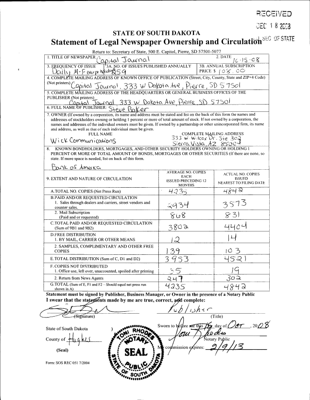 RECEIVED
DEC 18 2008
STATE OF SOUTH DAKOTA
Statement of Legal Newspaper Ownership and Circulation
Return to Secretary of State, 500 E. Capitol, Pierre, SD 57501-5077
1. TITLE OF NEWSPAPER Capital Journal
2. DATE 10-15-08
3. FREQUENCY OF ISSUE Daily M-F
3A. NO. OF ISSUES PUBLISHED ANNUALLY
3B. ANNUAL SUBSCRIPTION PRICE $
4. COMPLETE MAILING ADDRESS OF KNOWN OFFICE OF PUBLICATION (Street, City, County, State and ZIP+4 Code) (Not printers)
Capital Journal 333 W Dakota Ave Pierre, SD 57501
5. COMPLETE MAILING ADDRESS OF THE HEADQUARTERS OF GENERAL BUSINESS OFFICES OF THE PUBLISHER (Not printers)
Capital Journal 333 W Dakota Ave Pierre SD 57501
6. FULL NAME OF PUBLISHER Steve Baker
7. OWNER (If owned by a corporation, its name and address must be stated and list on the back of this form the names and
addresses of stockholders owning or holding 1 percent or more of total amount of stock. If not owned by a corporation, the
names and addresses of the individual owners must be given. If owned by a partnership or other unincorporated firm, its name
and address, as well as that of each individual must be given.
FULL NAME
COMPLETE MAILING ADDRESS
Wick Communications
333 W Wilcox Dr. Ste 302
Sierra Vista, AZ 85635
8. KNOWN BONDHOLDERS, MORTGAGES, AND OTHER SECURITY HOLDERS OWNING OR HOLDING 1
PERCENT OR MORE OF TOTAL AMOUNT OF BONDS, MORTGAGES OR OTHER SECURITIES (If there are none, so
state. If more space is needed, list on back of this form.
Bank of America
9. EXTENT AND NATURE OF CIRCULATION
AVERAGE NO. COPIES EACH ISSUED PRECEDING 12 MONTHS
ACTUAL NO. COPIES ISSUED NEAREST TO FILING DATE
A. TOTAL NO. COPIES (Net Press Run) 4235 4842
B. PAID AND/OR REQUESTED CIRCULATION
1. Sales through dealers and carriers, street vendors and counter sales. 2994 3573
2. Mail Subscription (Paid and/or requested) 808 831
C. TOTAL PAID AND/OR REQUESTED CIRCULATION (Sum of 9B1 and 9B2) 3802 4404
D. FREE DISTRIBUTION
1. BY MAIL, CARRIER OR OTHER MEANS 12 14
2. SAMPLES, COMPLIMENTARY AND OTHER FREE COPIES 139 103
E. TOTAL DISTRIBUTION (Sum of C, D1 and D2) 3953 4521
F. COPIES NOT DISTRIBUTED
1. Office use, left over, unaccounted, spoiled after printing 35 19
2. Return from News Agents 247 302
G. TOTAL (Sum of E, F1 and F2 - Should equal net press run shown in A) 4235 4842
Statement must be signed by Publisher, Business Manager, or Owner in the presence of a Notary Public
I swear that the statements made by me are true, correct, and complete:
Publisher
(Signature)
(Title)
State of South Dakota )
County of Hughes )
(Seal)
day of Oct 2008
Notary Public
My commission expires: 2/9/13
TONI RHODES
NOTARY
SEAL
PUBLIC
SOUTH DAKOTA
Form: SOS REC 051 7/2004